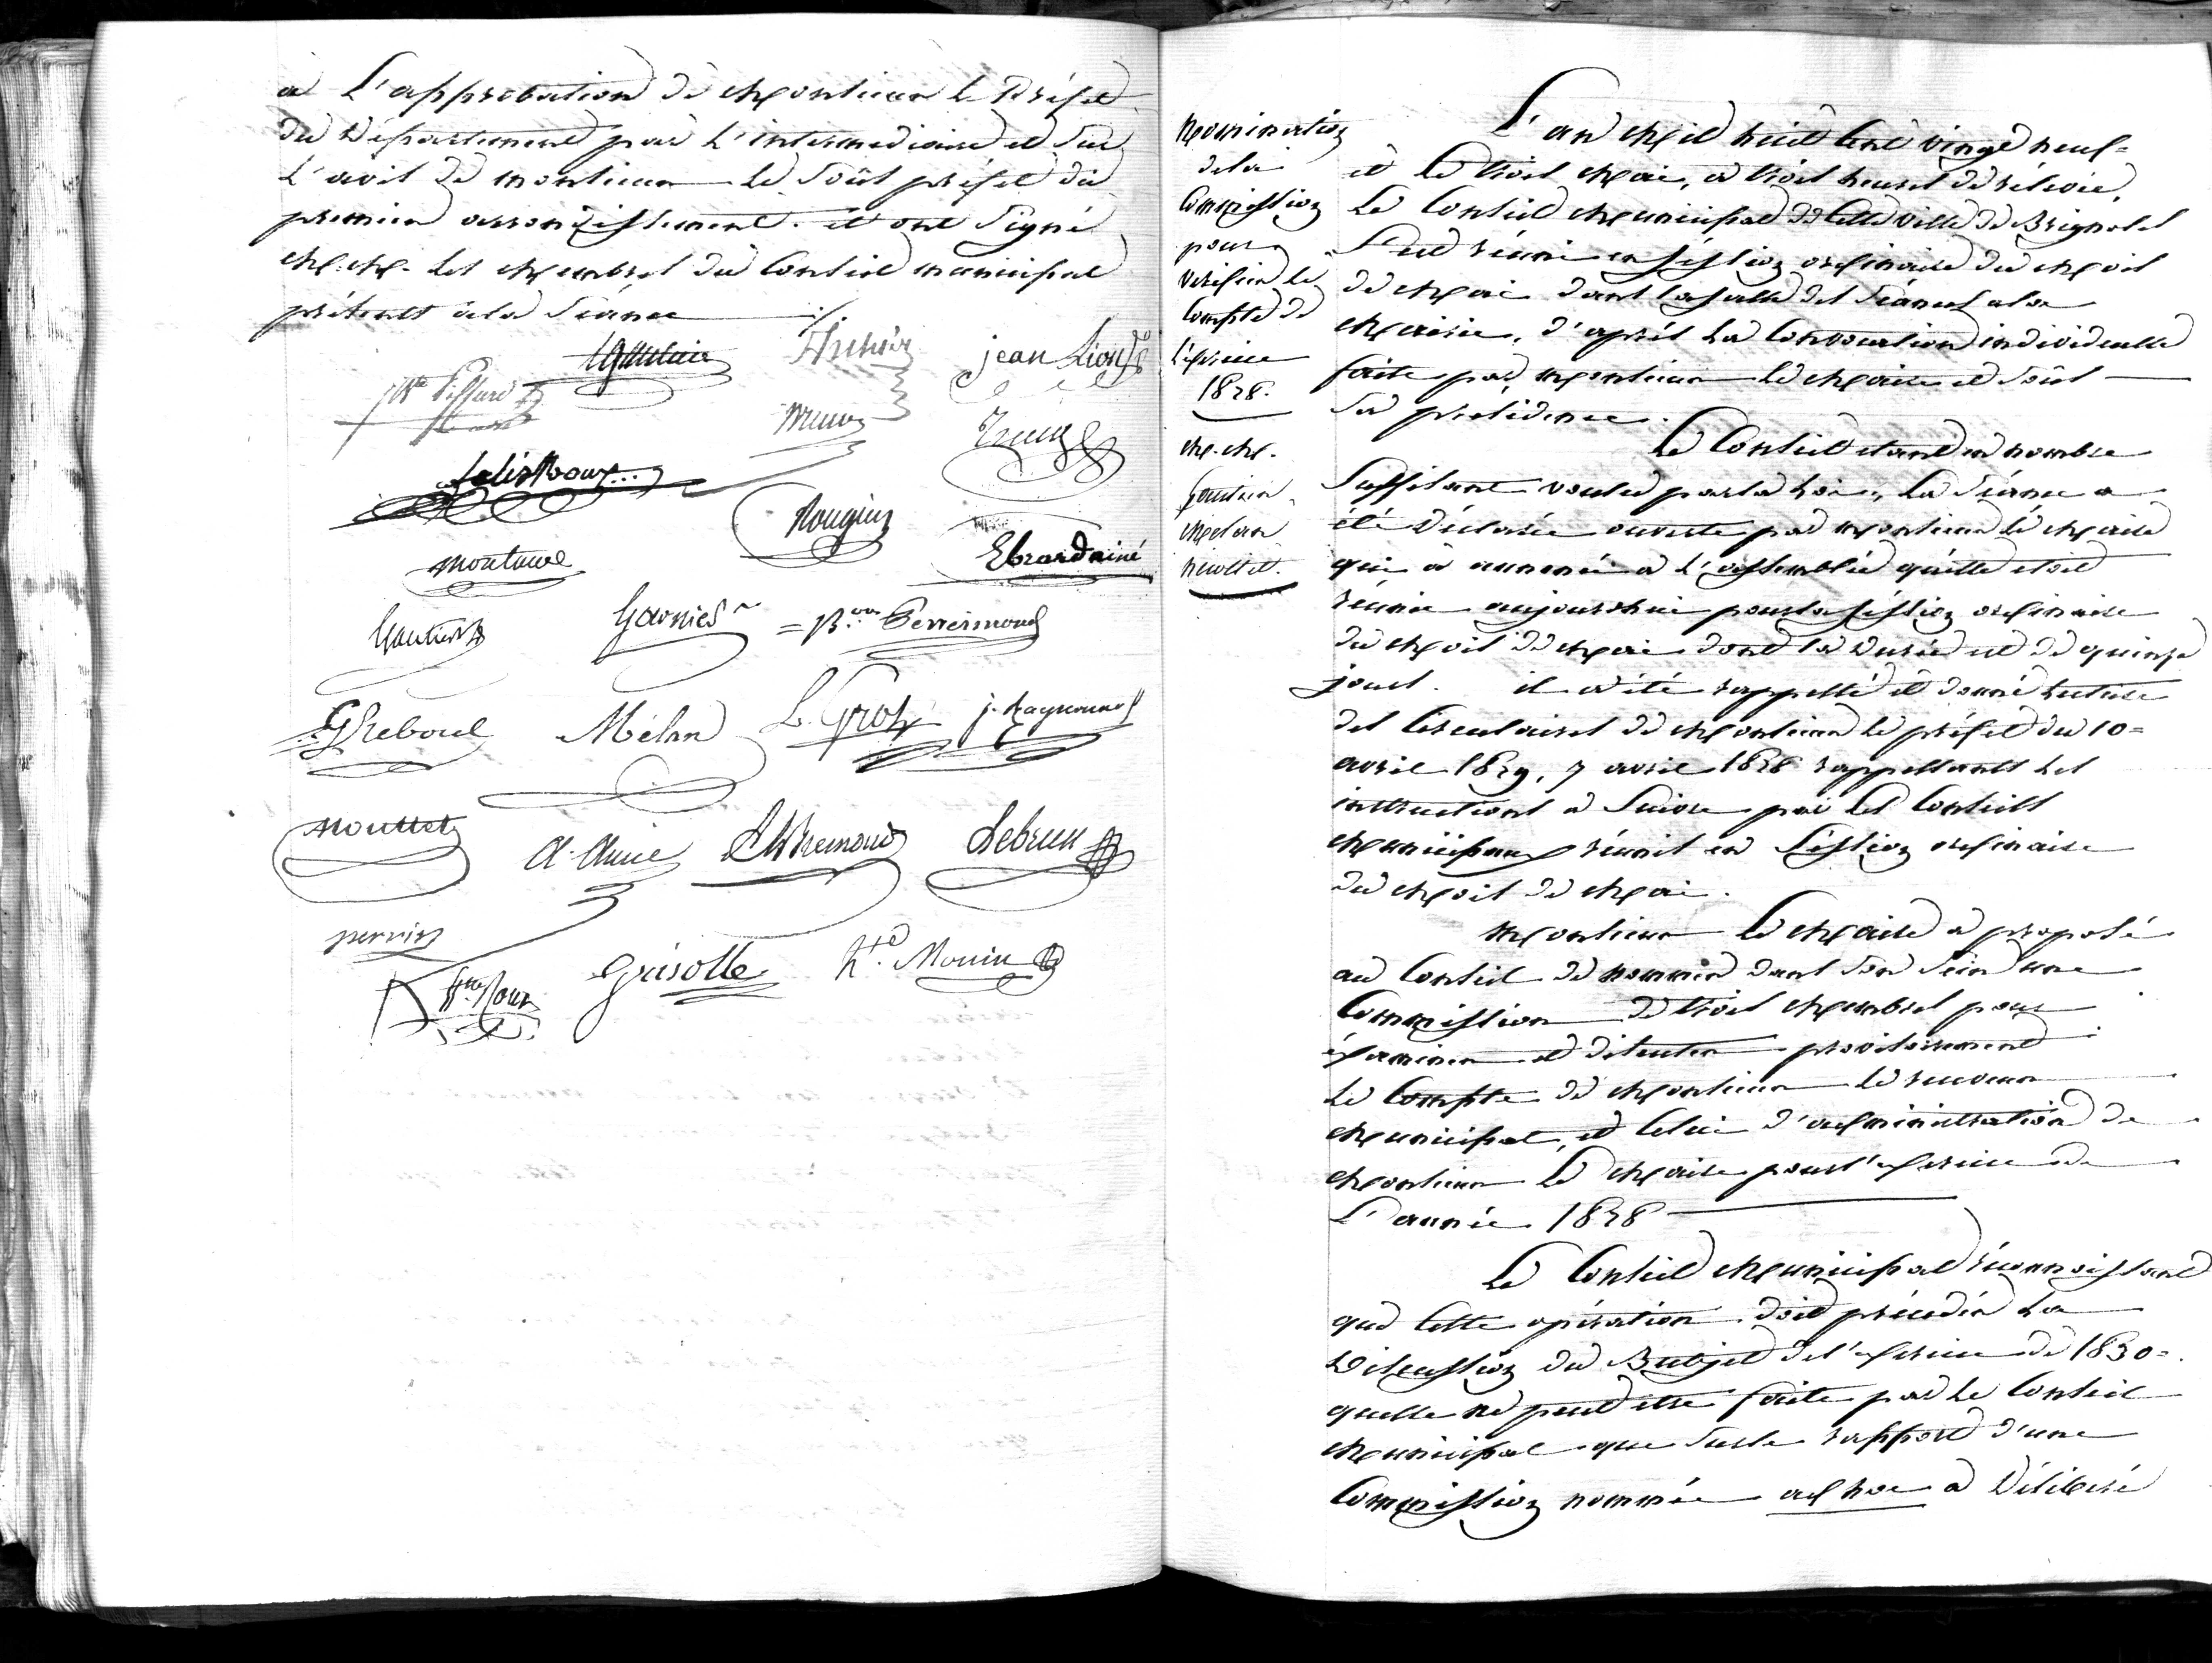 à L'approbation de Monsieur le Préfet
du Département par L'intermédiaire et sur
L'avis de monsieur le Sous préfet du
premier arrondissement. et ont Signé
M.M. les Membres du Conseil municipal
présents à la Séance
jean Lion
felix Roux
Rougier
montaud
Ebrard ainé
Gautier
Garnier
= B.on Perreimond
G Reboul
Mélan
L. Gros
j. Raynaud
Mouttet
A. Amic
Bremond
Lebrun
perrin
Roux
Grisolle
h.te Monin
Nomination
de la
Commission
pour
vérifier le
Compte de
L'exercice
1828.
M.M.
Gautier
Melan
Nicollet.
L'an Mil huit Cent vingt neuf =
et le trois Mai, à trois heures de rélevée,
Le Conseil Municipal de Cette ville de Brignoles
S'est réuni en Séssion ordinaire du Mois
de Mai dans la Salle des Séances à la
Mairie, d'après la Convocation individuelle
faite par Monsieur le Maire et Sous
Sa présidence.
Le Conseil étant en nombre
Suffisant voulu par la Loi, La Séance a
été Déclarée ouverte par Monsieur le Maire
qui a annoncé à L'assemblée qu'elle étoit
réunie aujourdhui pour la Séssion ordinaire
du Mois de Mai dont la durée est de quinze
jours. il a été rappellé et donné Lecture
des Circulaires de Monsieur le préfet du 10 =
avril 1829, 7 avril 1828 rappellants les
instructions à Suivre par les Conseils
Municipaux réunis en Séssion ordinaire
du Mois de Mai.
Monsieur Le Maire a proposé
au Conseil de nommer dans Son Sein une
Commission de trois Membres pour
éxaminer et discuter provisoirement
Le Compte de Monsieur le receveur
Municipal, et Celui d'administration de
Monsieur Le Maire pour l'exercice de
L'année 1828
Le Conseil Municipal réconnoissant
que Cette opération doit précéder La
Discussion du Budjet de l'exercice de 1830 =
quelle ne peut être faite par le Conseil
Municipal que Sur le rapport d'une
Commission nommée ad hoc a Déliberé